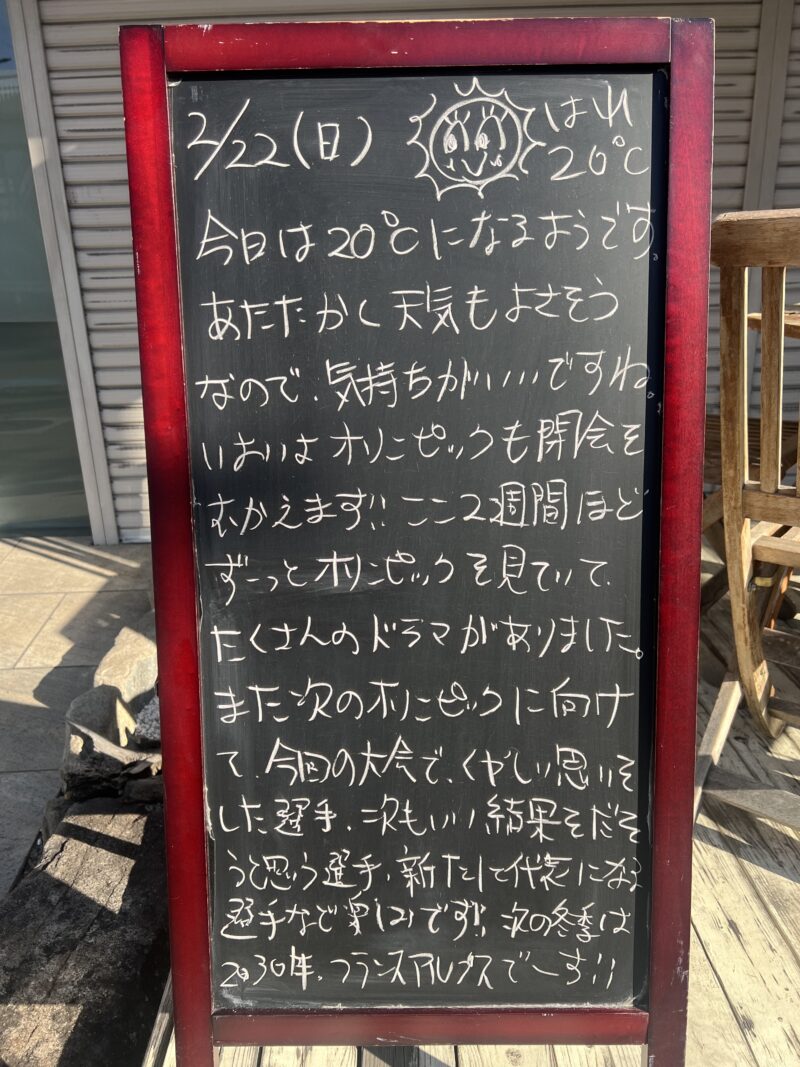 2/22(日) はれ 20℃
今日は20℃になるようです。
あたたかく天気もよさそう
なので、気持ちがいいですね。
いよいよオリンピックも閉会を
むかえます!! ここ2週間ほど
ずーっとオリンピックを見ていて、
たくさんのドラマがありました。
また次のオリンピックに向け
て、今回の大会で、くやしい思いを
した選手、次もいい結果をだそ
うと思う選手、新たして代表になる
選手など楽しみです!! 次の冬季は
2030年、フランスアルプスでーす!!